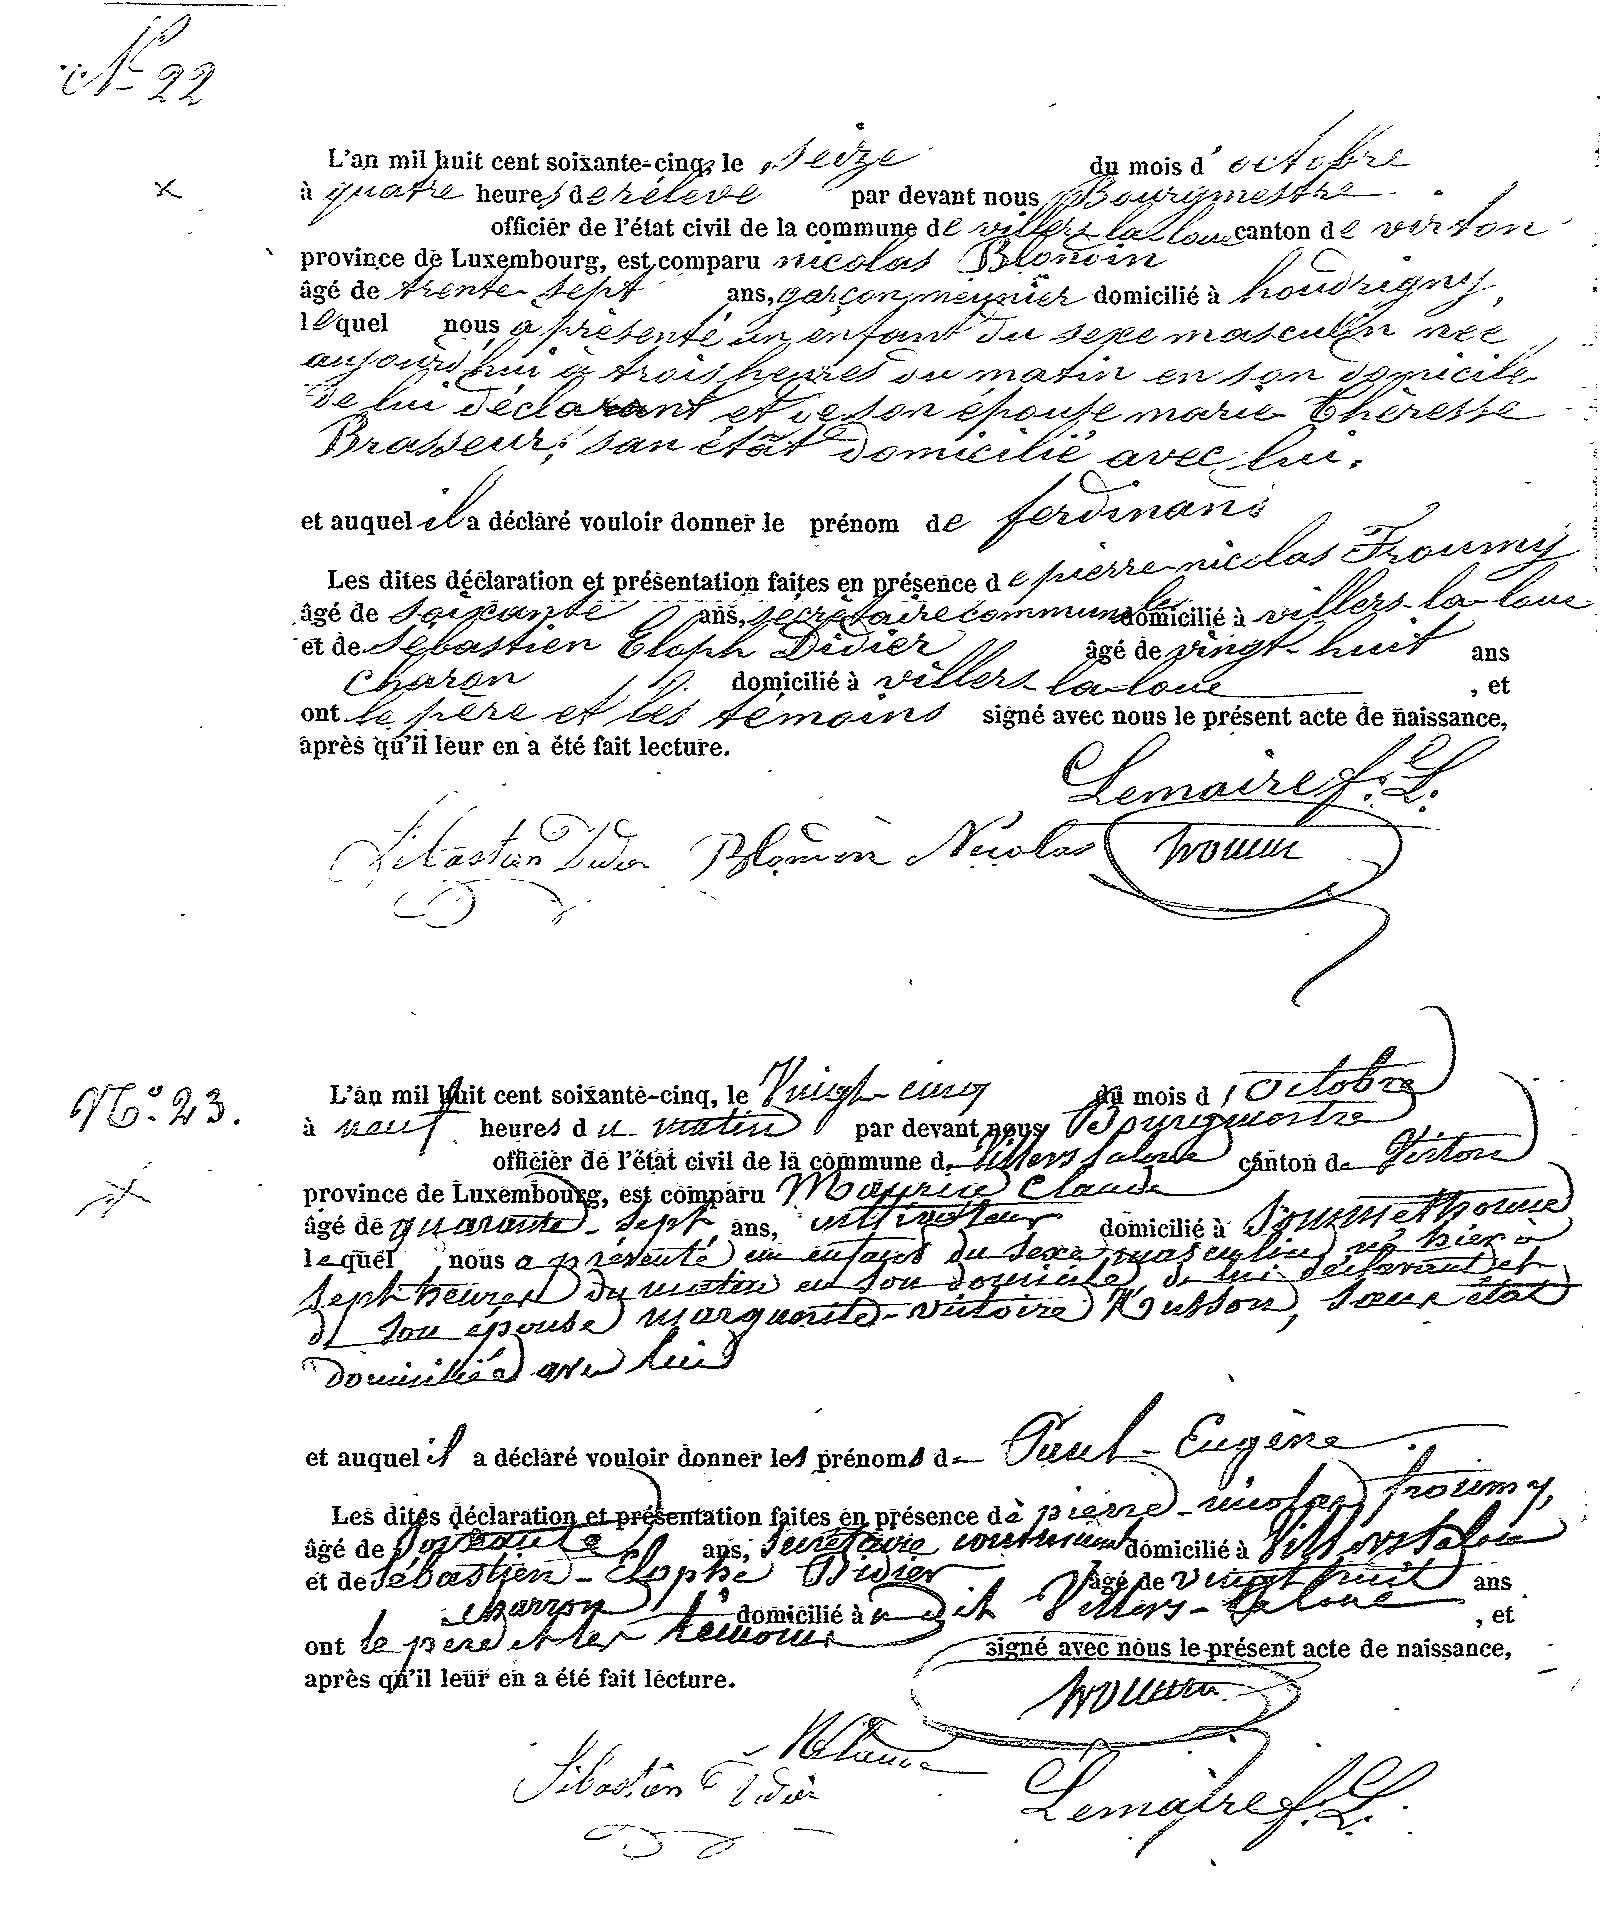 N° 22
L'an mil huit cent soixante-cinq, le seize du mois d' octobre
à quatre heures de rélevé par devant nous Bourgmestre
officier de l'état civil de la commune de villers-la-loue canton de virton
province de Luxembourg, est comparu nicolas Blondin
âgé de trente-sept ans, garçon meunier domicilié à houdrigny,
lequel nous a présenté un enfant du sexe masculin née
aujourd'hui à trois heures du matin en son domicile
de lui déclarant et de son épouse marie Thèresse
Brasseur, san état domicilié avec lui.
et auquel il a déclaré vouloir donner le prénom de ferdinand
Les dites déclaration et présentation faites en présence de pierre-nicolas Froumy
âgé de soixante ans, secrétaire communale domicilié à villers-la-loue
et de sébastien Eloph Didier âgé de vingt-huit ans
charon domicilié à villers-la-loue , et
ont le père et les témoins signé avec nous le présent acte de naissance,
après qu'il leur en a été fait lecture.
Lemaire f. L.
Sébastien Didier Blondin Nicolas
N° 23.
L'an mil huit cent soixante-cinq, le Vingt-cinq du mois d' Octobre
à neuf heures du matin par devant nous Bourgmestre
officier de l'état civil de la commune de Villers Laloue canton de Virton
province de Luxembourg, est comparu Maurice Claude
âgé de quarante-sept ans, cultivateur domicilié à Sommethonne
lequel nous a présenté un enfant du sexe masculin né hier à
sept heures du matin en son domicile, de lui déclarant et
de son épouse Marguerite-Victoire Husson, sans état
domiciliée avec lui
et auquel il a déclaré vouloir donner les prénoms de Paul-Eugène
Les dites déclaration et présentation faites en présence de pierre-nicolas froumy,
âgé de soixante ans, secrétaire communal domicilié à Villers Laloue
et de sébastien-Elophe Didier âgé de vingt huit ans
charron domicilié à u dit Villers-Laloue , et
ont le père et les témoins signé avec nous le présent acte de naissance,
après qu'il leur en a été fait lecture.
Sébastien Didier Lemaire f. L.